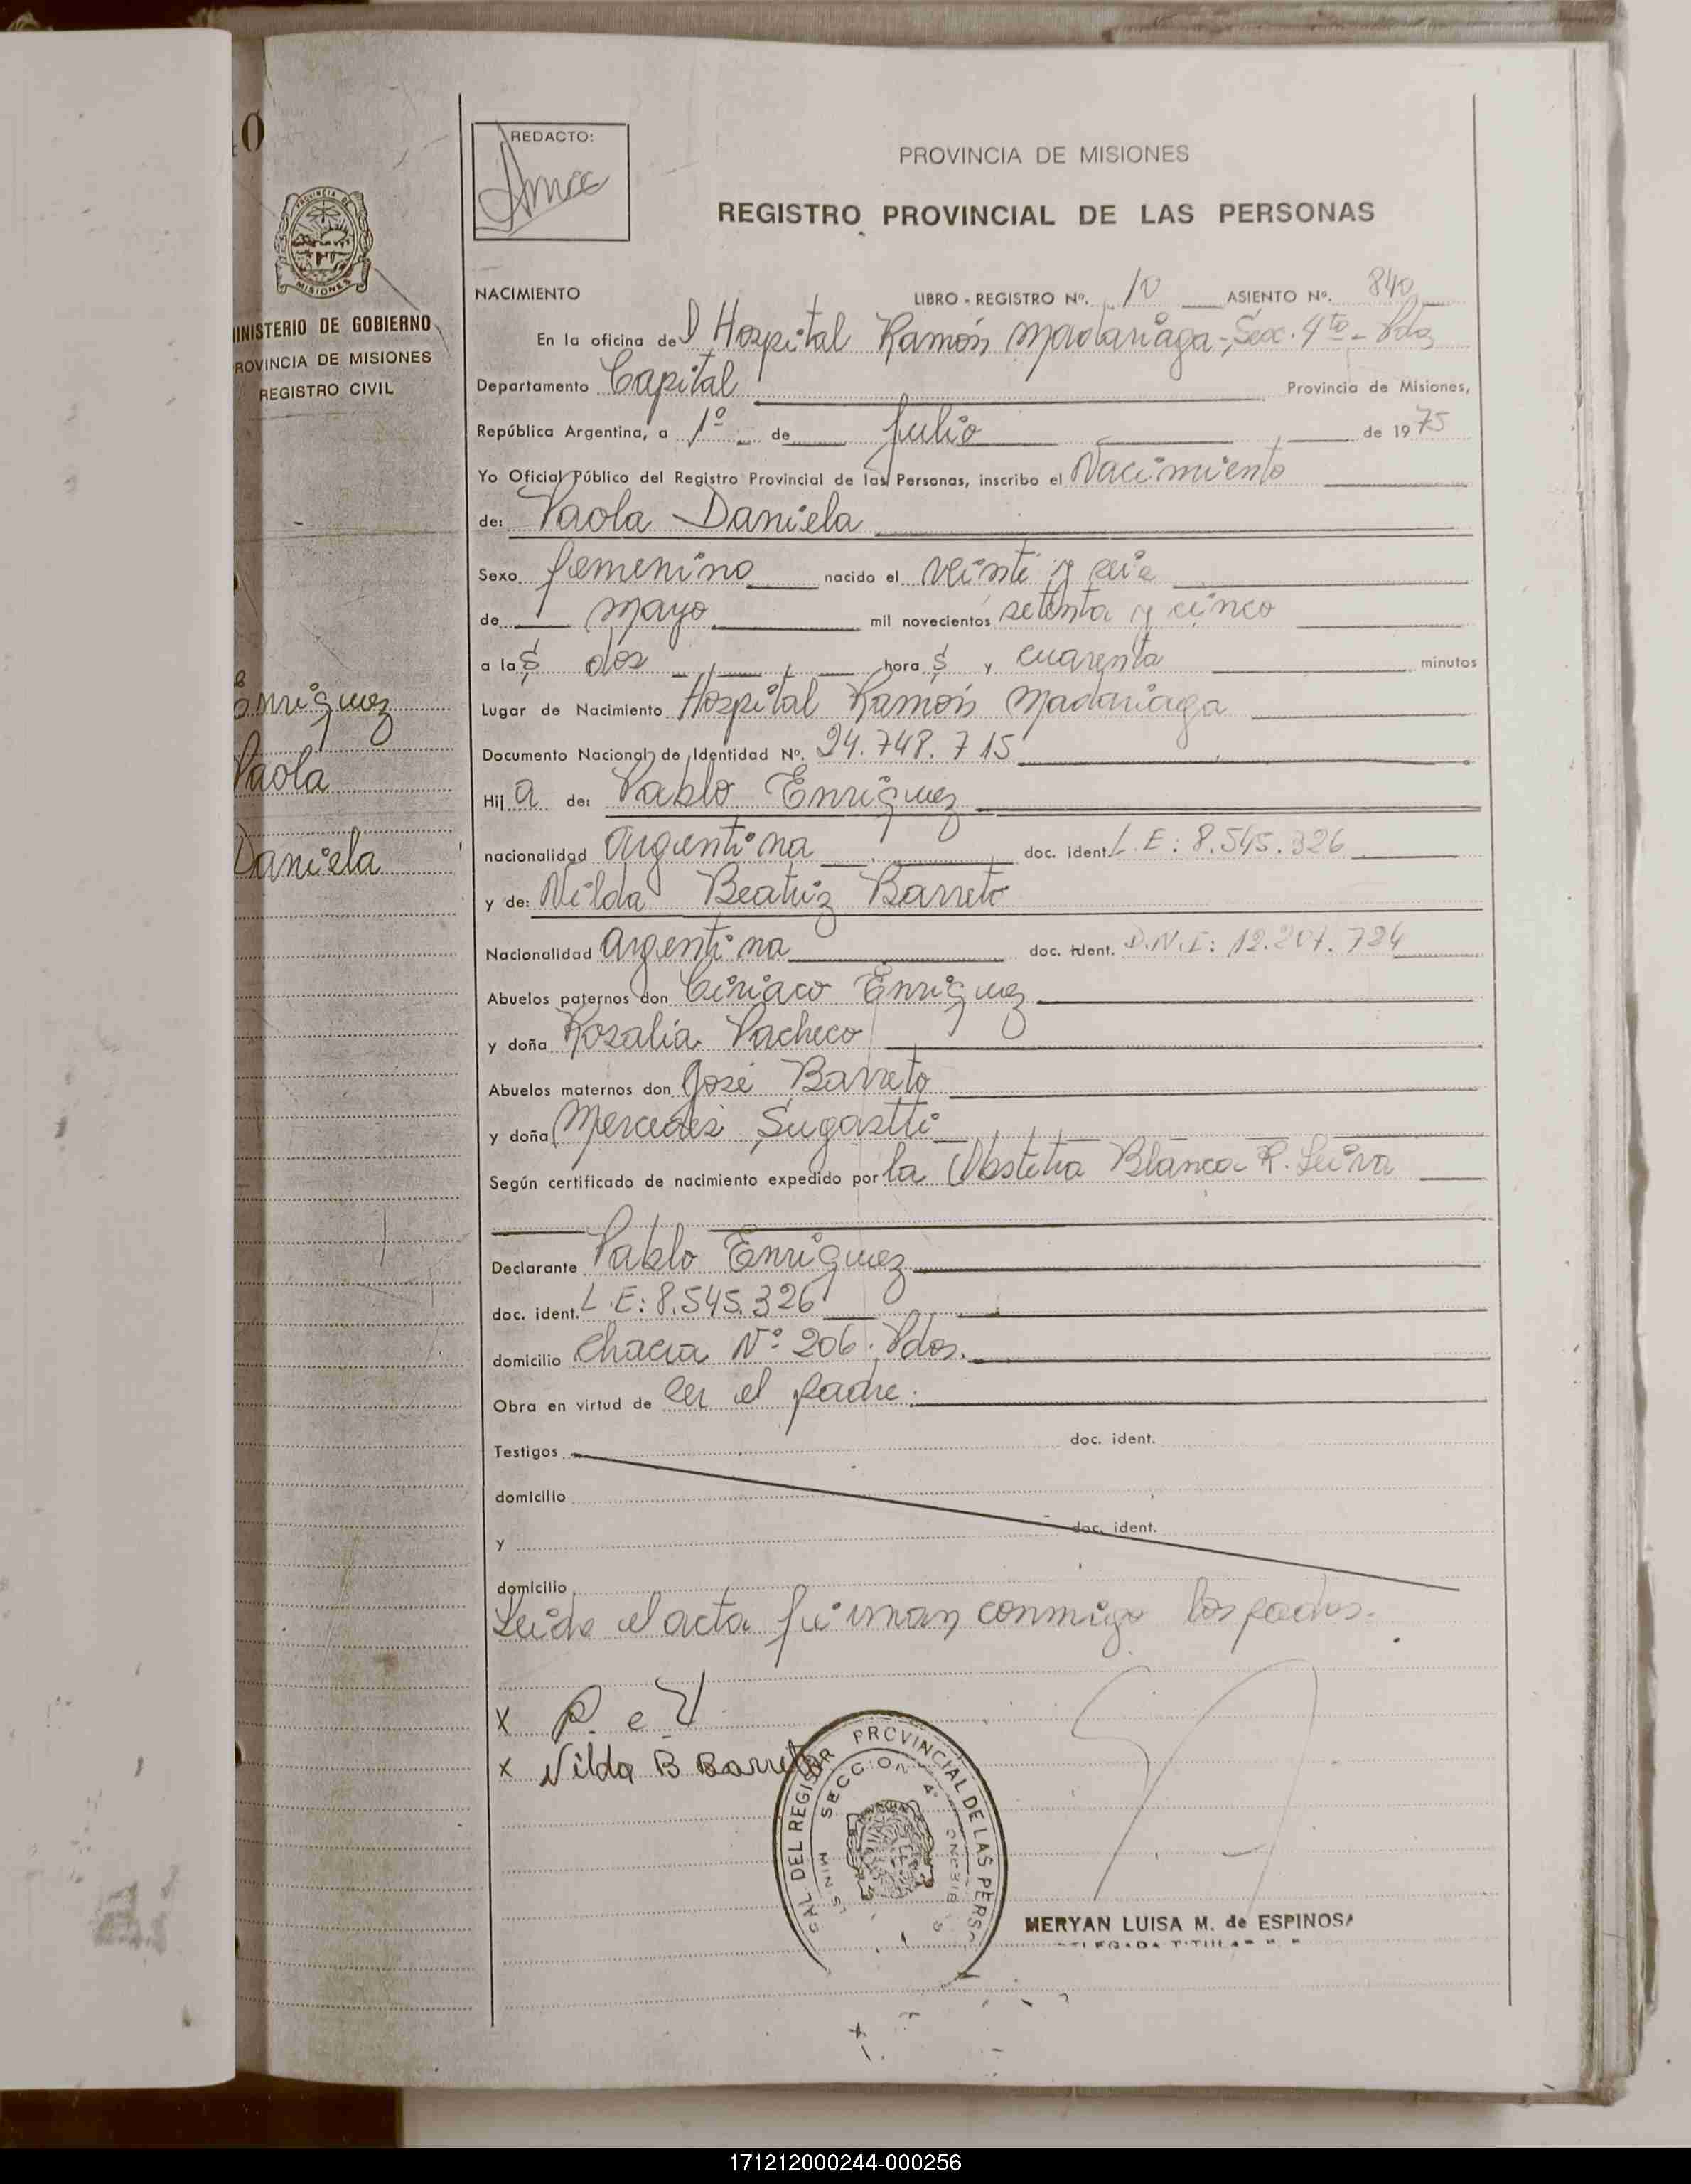 REDACTO:
PROVINCIA DE MISIONES
REGISTRO PROVINCIAL DE LAS PERSONAS
NACIMIENTO LIBRO - REGISTRO Nº. 10 ASIENTO Nº. 840
En la oficina del Hospital Ramón Madariaga - Sec. 4ta - Pdas
Departamento Capital Provincia de Misiones,
República Argentina, a 1º de Julio de 1975
Yo Oficial Público del Registro Provincial de las Personas, inscribo el Nacimiento
de: Paola Daniela
Sexo femenino nacido el veinte y seis
de mayo mil novecientos setenta y cinco
a las dos horas y cuarenta minutos
Lugar de Nacimiento Hospital Ramón Madariaga
Documento Nacional de Identidad Nº. 24.748.715
Hija de: Pablo Enriquez
nacionalidad argentina doc. ident. L.E: 8.545.326
y de: Nilda Beatriz Barreto
Nacionalidad argentina doc. ident. D.N.I: 12.207.724
Abuelos paternos don Ciriaco Enriquez
y doña Rosalia Pacheco
Abuelos maternos don José Barreto
y doña Mercedes Sugastti
Según certificado de nacimiento expedido por la Obstetra Blanca R. Leiva
Declarante Pablo Enriquez
doc. ident. L.E: 8.545.326
domicilio Chacra Nº 206. Pdas.
Obra en virtud de ser el padre.
Testigos doc. ident.
domicilio
y doc. ident.
domicilio
Leida el acta firman conmigo los padres.
X P. e
X Nilda B Barreto
PROVINCIAL DE LAS PERS
SECCION 4º
MERYAN LUISA M. de ESPINOSA
MISIONES
MINISTERIO DE GOBIERNO
PROVINCIA DE MISIONES
REGISTRO CIVIL
Enriquez
Paola
Daniela
171212000244-000256